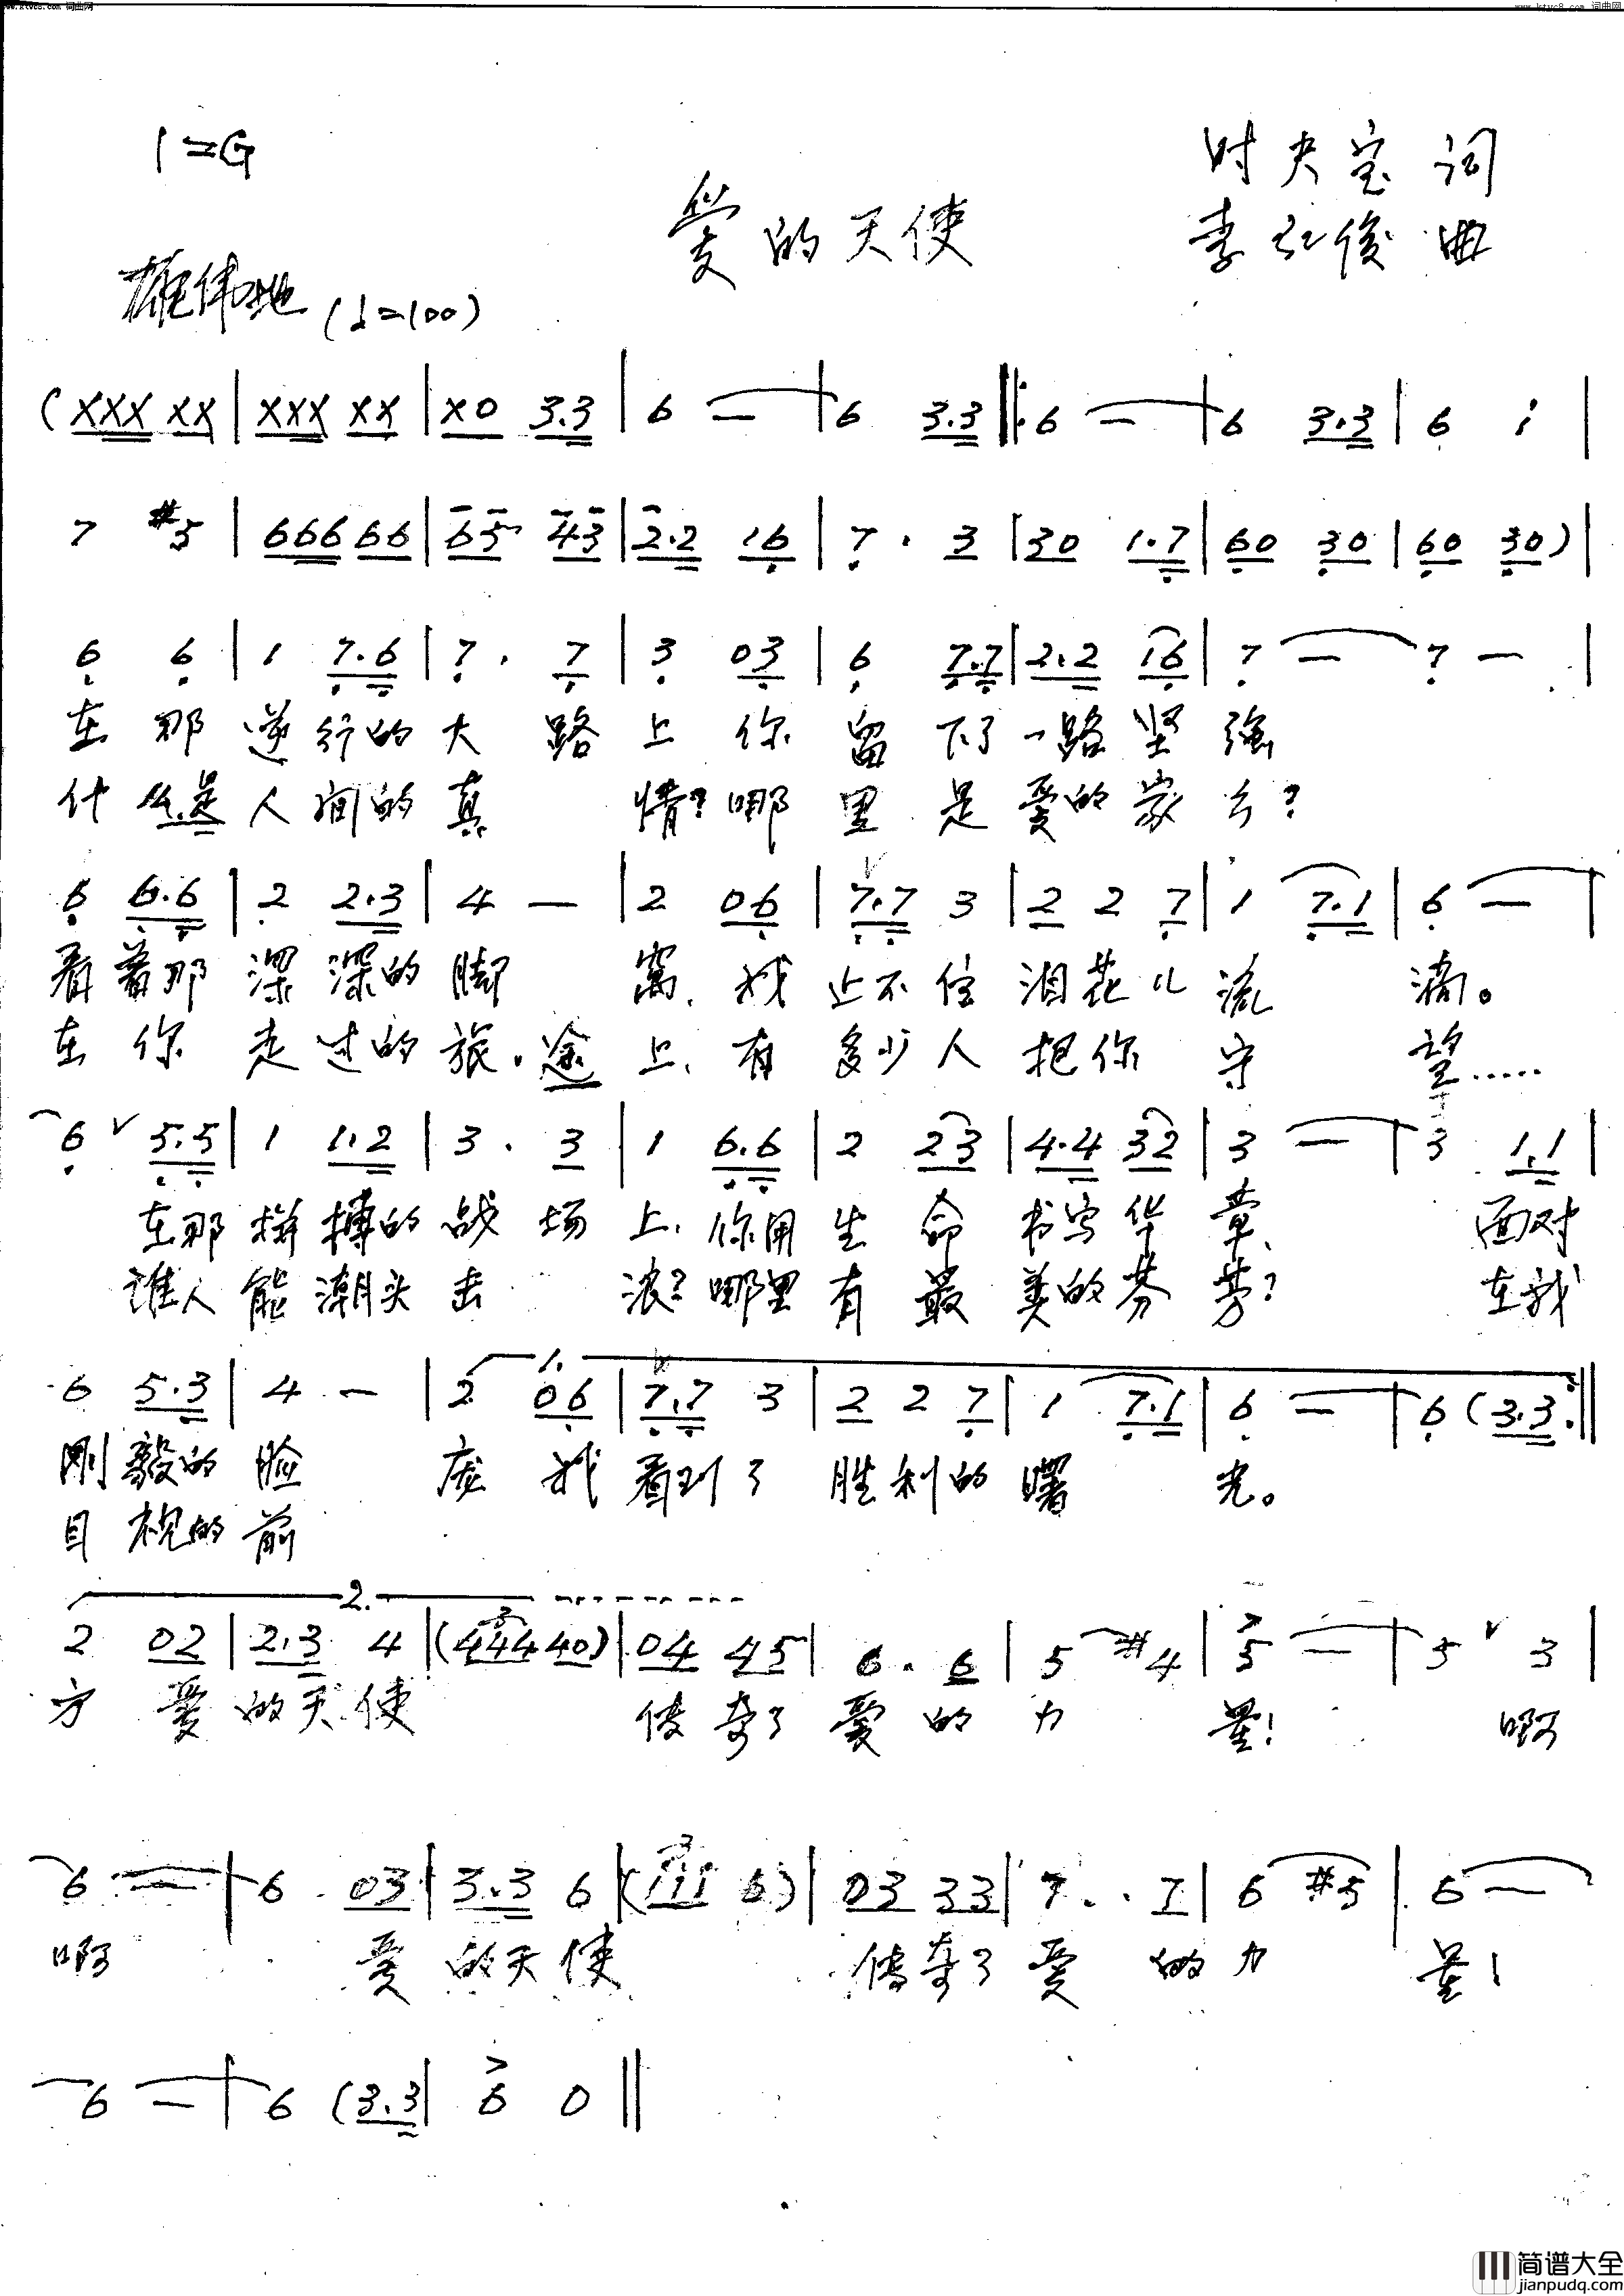 www.ktvc8.com 词曲网
www.ktvc8.com 词曲网
1=G
时央宝 词
爱的天使
李弘俊 曲
雄伟地 (♩=100)
(XXX XX | XXX XX | X0 3.3 | 6 — | 6 3.3 ‖: 6 — | 6 3.3 | 6 i |
7 #5 | 666 66 | 65 43 | 2.2 16 | 7 . 3 | 30 1.7 | 60 30 | 60 30) |
6 6 | 1 7.6 | 7 . 7 | 3 03 | 6 7.7 | 2.2 16 | 7 — | 7 — |
在 那 逆行的大 路 上 你 留 下了一路坚 强
什 么是人间的真 情?哪 里 是爱的家乡?
6 6.6 | 2 2.3 | 4 — | 2 06 | 7.7 3 | 2 2 7 | 1 7.1 | 6 — |
看着那 深深的脚 窝、我 止不住 泪花儿流 淌。
在你 走过的旅途 上、有 多少人 把你 守 望……
6 ∨ 5.5 | 1 1.2 | 3 . 3 | 1 6.6 | 2 23 | 4.4 32 | 3 — | 3 1.1 |
在那拼搏的战 场 上、你用生 命 书写华 章、 面对
谁人能潮头击 浪?哪里有 最 美的芬 芳? 在我
6 5.3 | 4 — | 1. 2 06 | 7.7 3 | 2 2 7 | 1 7.1 | 6 — | 6 (3.3 :‖
刚毅的脸 庞 我 看到了 胜利的曙 光。
目视的前
2.
2 02 | 2.3 4 | (444 40) | 04 45 | 6 . 6 | 5 #4 | 5 — | 5 ∨ 3 |
方 爱的天使 传奇了爱 的 力 量! 啊
6 — | 6 03 | 3.3 6 | (iii 6) | 03 33 | 7 . . 7 | 6 #5 | 6 — |
啊 爱 的天使 传奇了爱 的力 量!
6 — | 6 (3.3 | 6 0 ‖
简谱大全
jianpudq.com